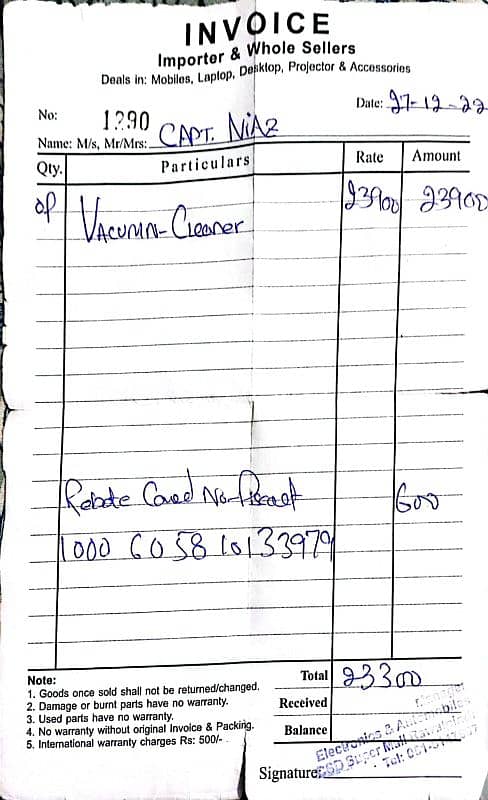 INVOICE
Importer & Whole Sellers
Deals in: Mobiles, Laptop, Desktop, Projector & Accessories
No: 1290 Date: 27-12-22
Name: M/s, Mr/Mrs: CAPT. NiAZ
Qty. Particulars Rate Amount
VACUMN-Cleaner 23900 23900
Rebate Cared No 600
1000 6058 10133979
Note: Total 23300
1. Goods once sold shall not be returned/changed.
2. Damage or burnt parts have no warranty. Received
3. Used parts have no warranty.
4. No warranty without original Invoice & Packing. Balance
5. International warranty charges Rs: 500/-
Manager
Electronics & Automobile
Signature: CSD Super Mall
Tel: 051-